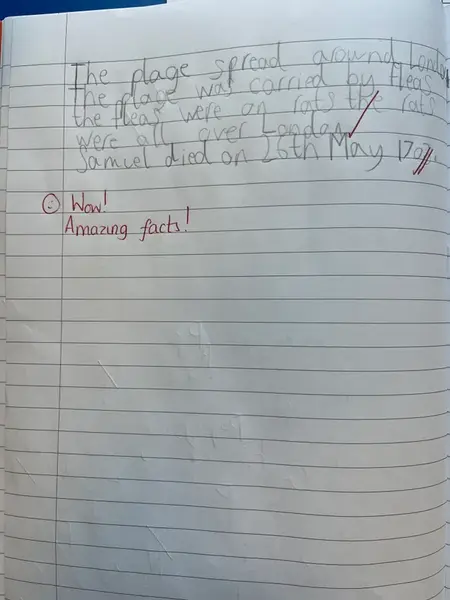 The plage spread around London
The plage was carried by fleas
the fleas were on rats the rats
were all over London
Samuel died on 26th May 1703.
Wow!
Amazing facts!